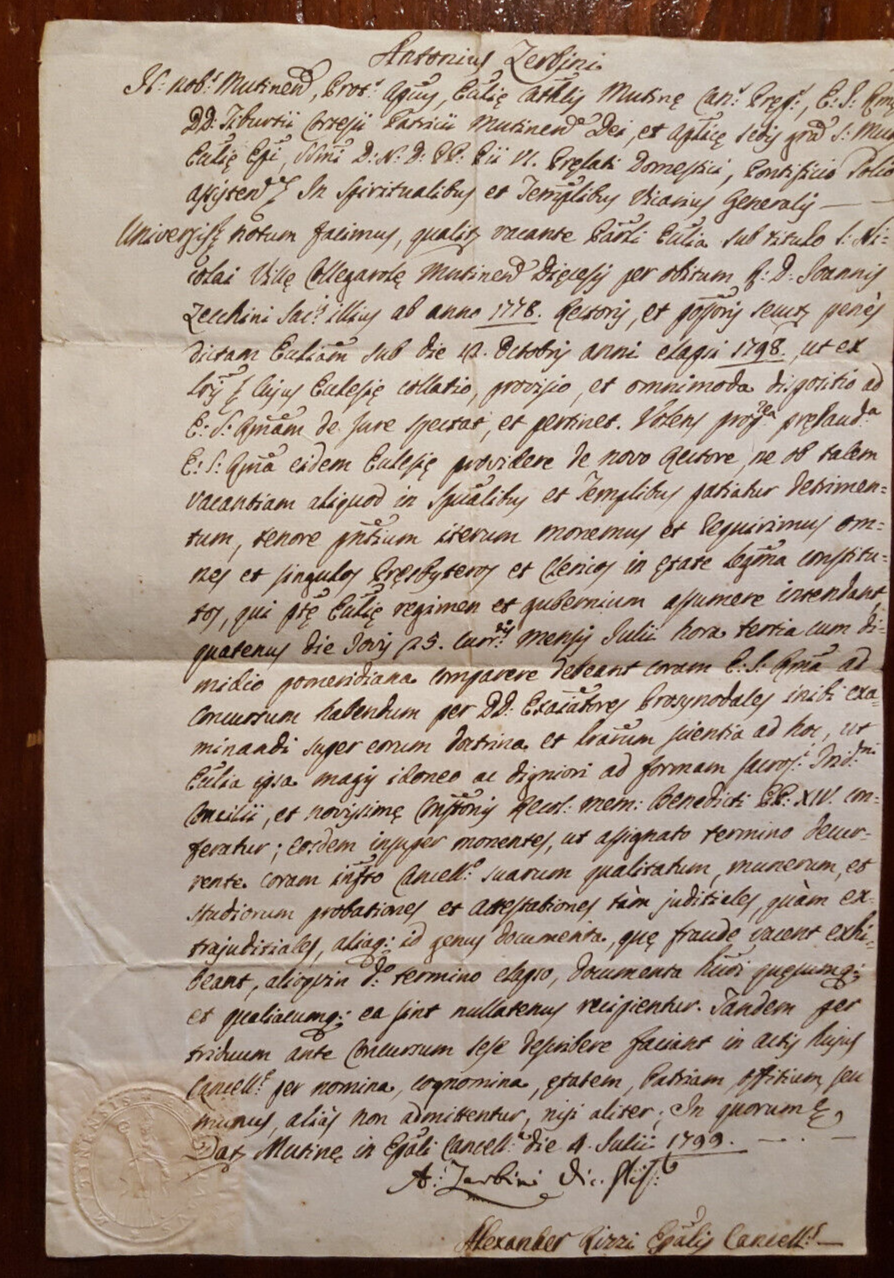 Antonius Zerbini
N: nob.s Mutinens, Prot.s Aplicus, Ecclię Cathlis Mutinę Can.s Pręp.s, E: S: Rmę
DD: Tiburtii Cortesii Patricii Mutinens Dei, et Aplicę Sedis grã S: Mut
Ecclię Epi, SSmi D: N: D: PP: Pii VI. Pręlati Domestici, Pontificio Solio
Assistens In Spiritualibus et Templibus Vicarius Generalis —
Universis notum facimus, qualr vacante Parli Ecclia sub titulo S: Ni=
colai Villę Collegarolę Mutinens Dięcesis per obitum q: D. Joannis
Zecchini Sac.s illius ab anno 1778. Rectoris, et possoris secut penès
dictam Eccliam sub die 12. Octobris anni elapsi 1798., ut ex
cujus Eclesię collatio, provisio, et omnimoda dispositio ad
E: S: Rmam de Jure spectat, et pertinet. Volens prędaud.a
E: S: Rma eidem Eclesię providere de novo Rectore, ne ob talem
vacantiam aliquod in Spualibus et Templibus patiatur detrimen=
tum, tenore pntium iterum monemus et requirimus om=
nes et singulos Pręsbyteros et Clericos in ętate legma constitu=
tos, qui ptę Ecclię regimen et gubernium assumere intendant,
quatenus die Jovis 25. curr.tis mensis Julii hora tertia cum di=
midio pomeridiana comparere debeant coram E: S: Rma ad
Concursum habendum per DD: Exaiatores Prosynodales inibi exa=
minandi super eorum doctrina et lrarum scientia ad hoc, ut
Ecclia ipsa magis idoneo ac digniori ad formam Sacros: Trid.ni
Concilii, et novissimę Constonis Recol: mem: Benedicti PP: XIV. con=
feratur; eosdem insuper monentes, ut assignato termino decur=
rente coram infto Cancell.o suarum qualitatum, munerum, et
studiorum probationes et attestationes tàm judiciales, quàm ex=
trajudiciales, aliaq: id genus documenta, quę fraude vacent exhi=
beant, alioquin d.o termino elapso, documenta hujusmodi quęcumq:
et qualiacumq: ea sint nullatenus recipientur. Tandem per
triduum ante Concursum sese describere faciant in actis hujus
Cancell.ę per nomina, cognomina, ętatem, Patriam, offitium, seu
munus, aliàs non admittentur, nisi aliter; In quorum
Dat Mutinę in Epali Cancell.a die 4. Julii 1799. — . —
A: Zerbini Vic.
Alexander Rizzi Epalis Cancell.s —
MUTINENSIS